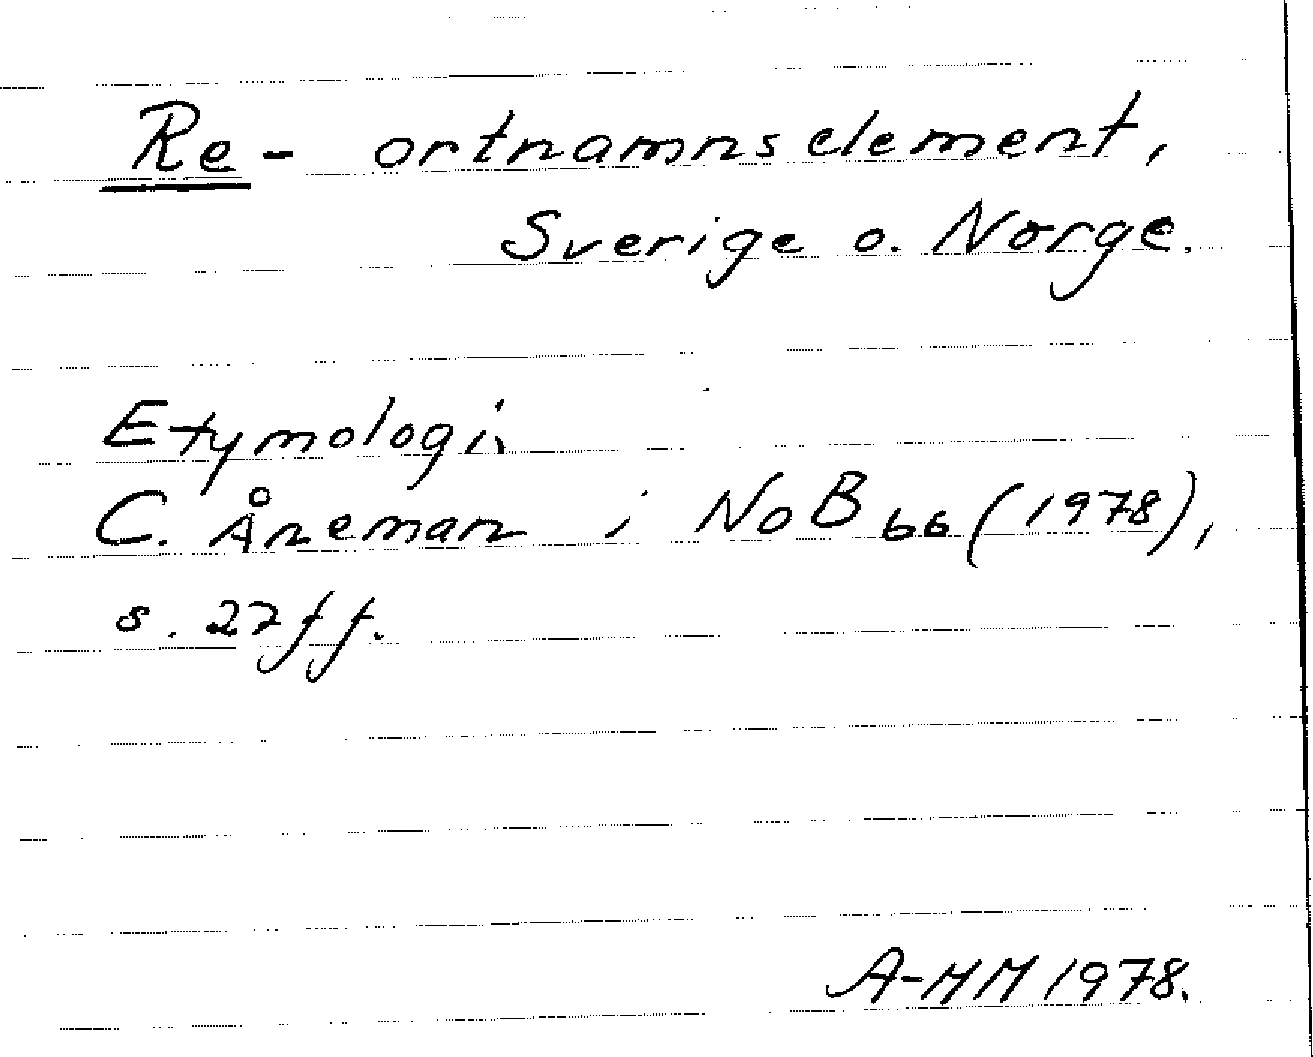 Re- ortnamnselement,
Sverige o. Norge.
Etymologi.
C. Åneman i NoB 66 (1978),
s. 27 ff.
A-MM 1978.